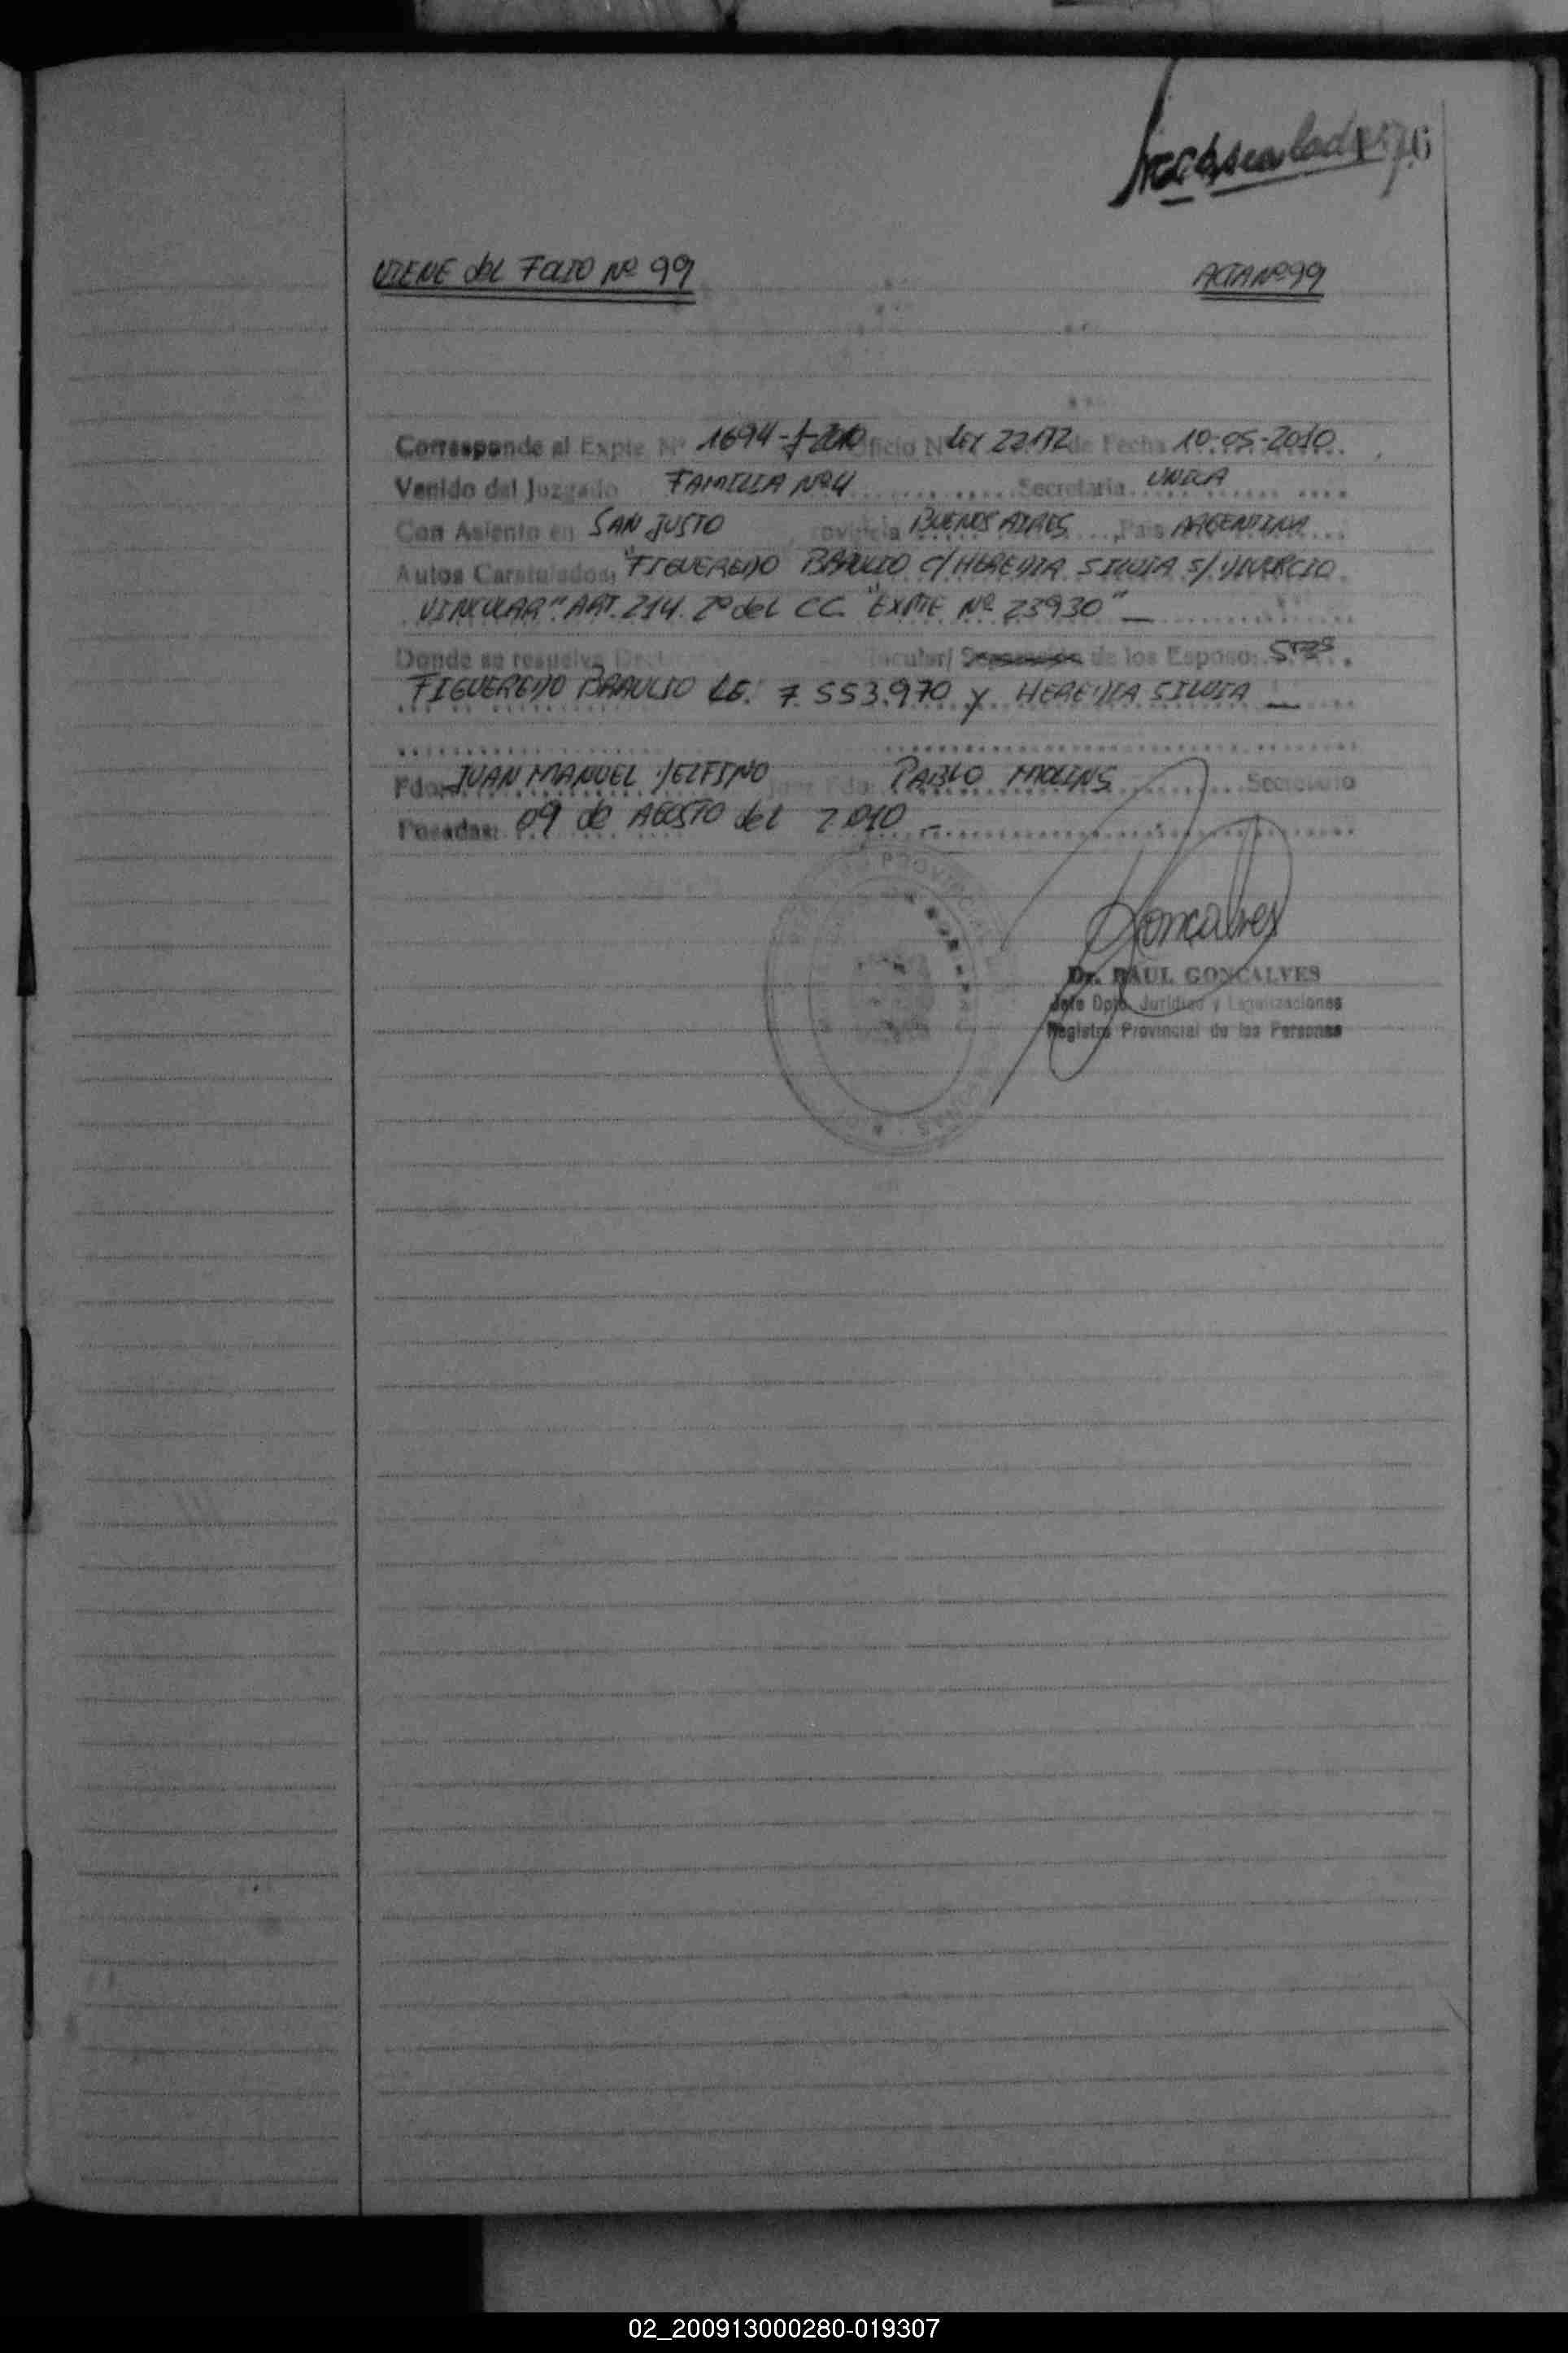 VIENE del FOLIO Nº 99
ACTA Nº 99
Corresponde al Expte Nº 1694-J-2010 Oficio N LEY 22172 de Fecha 10-05-2010
Venido del Juzgado FAMILIA Nº 4 Secretaria UNICA
Con Asiento en SAN JUSTO rovincia BUENOS AIRES, Pais ARGENTINA
Autos Caratulados, "FIGUEREDO BRAULIO C/ HEREDIA SILVIA S/ DIVORCIO
VINCULAR" ART. 214. 2º del CC. "EXPTE Nº 23930" —
Donde se resuelve Decl incular/ Separación de los Esposo:
FIGUEREDO BRAULIO LE: 7.553.970 y HEREDIA SILVIA —
Fdo: JUAN MANUEL DELFINO Juez Fdo: PABLO MOLINS Secretario
Posadas: 09 de AGOSTO del 2010 -
Goncalves
Dr. RAUL GONCALVES
Jefe Dpto. Jurídico y Legalizaciones
Registro Provincial de las Personas
02_200913000280-019307